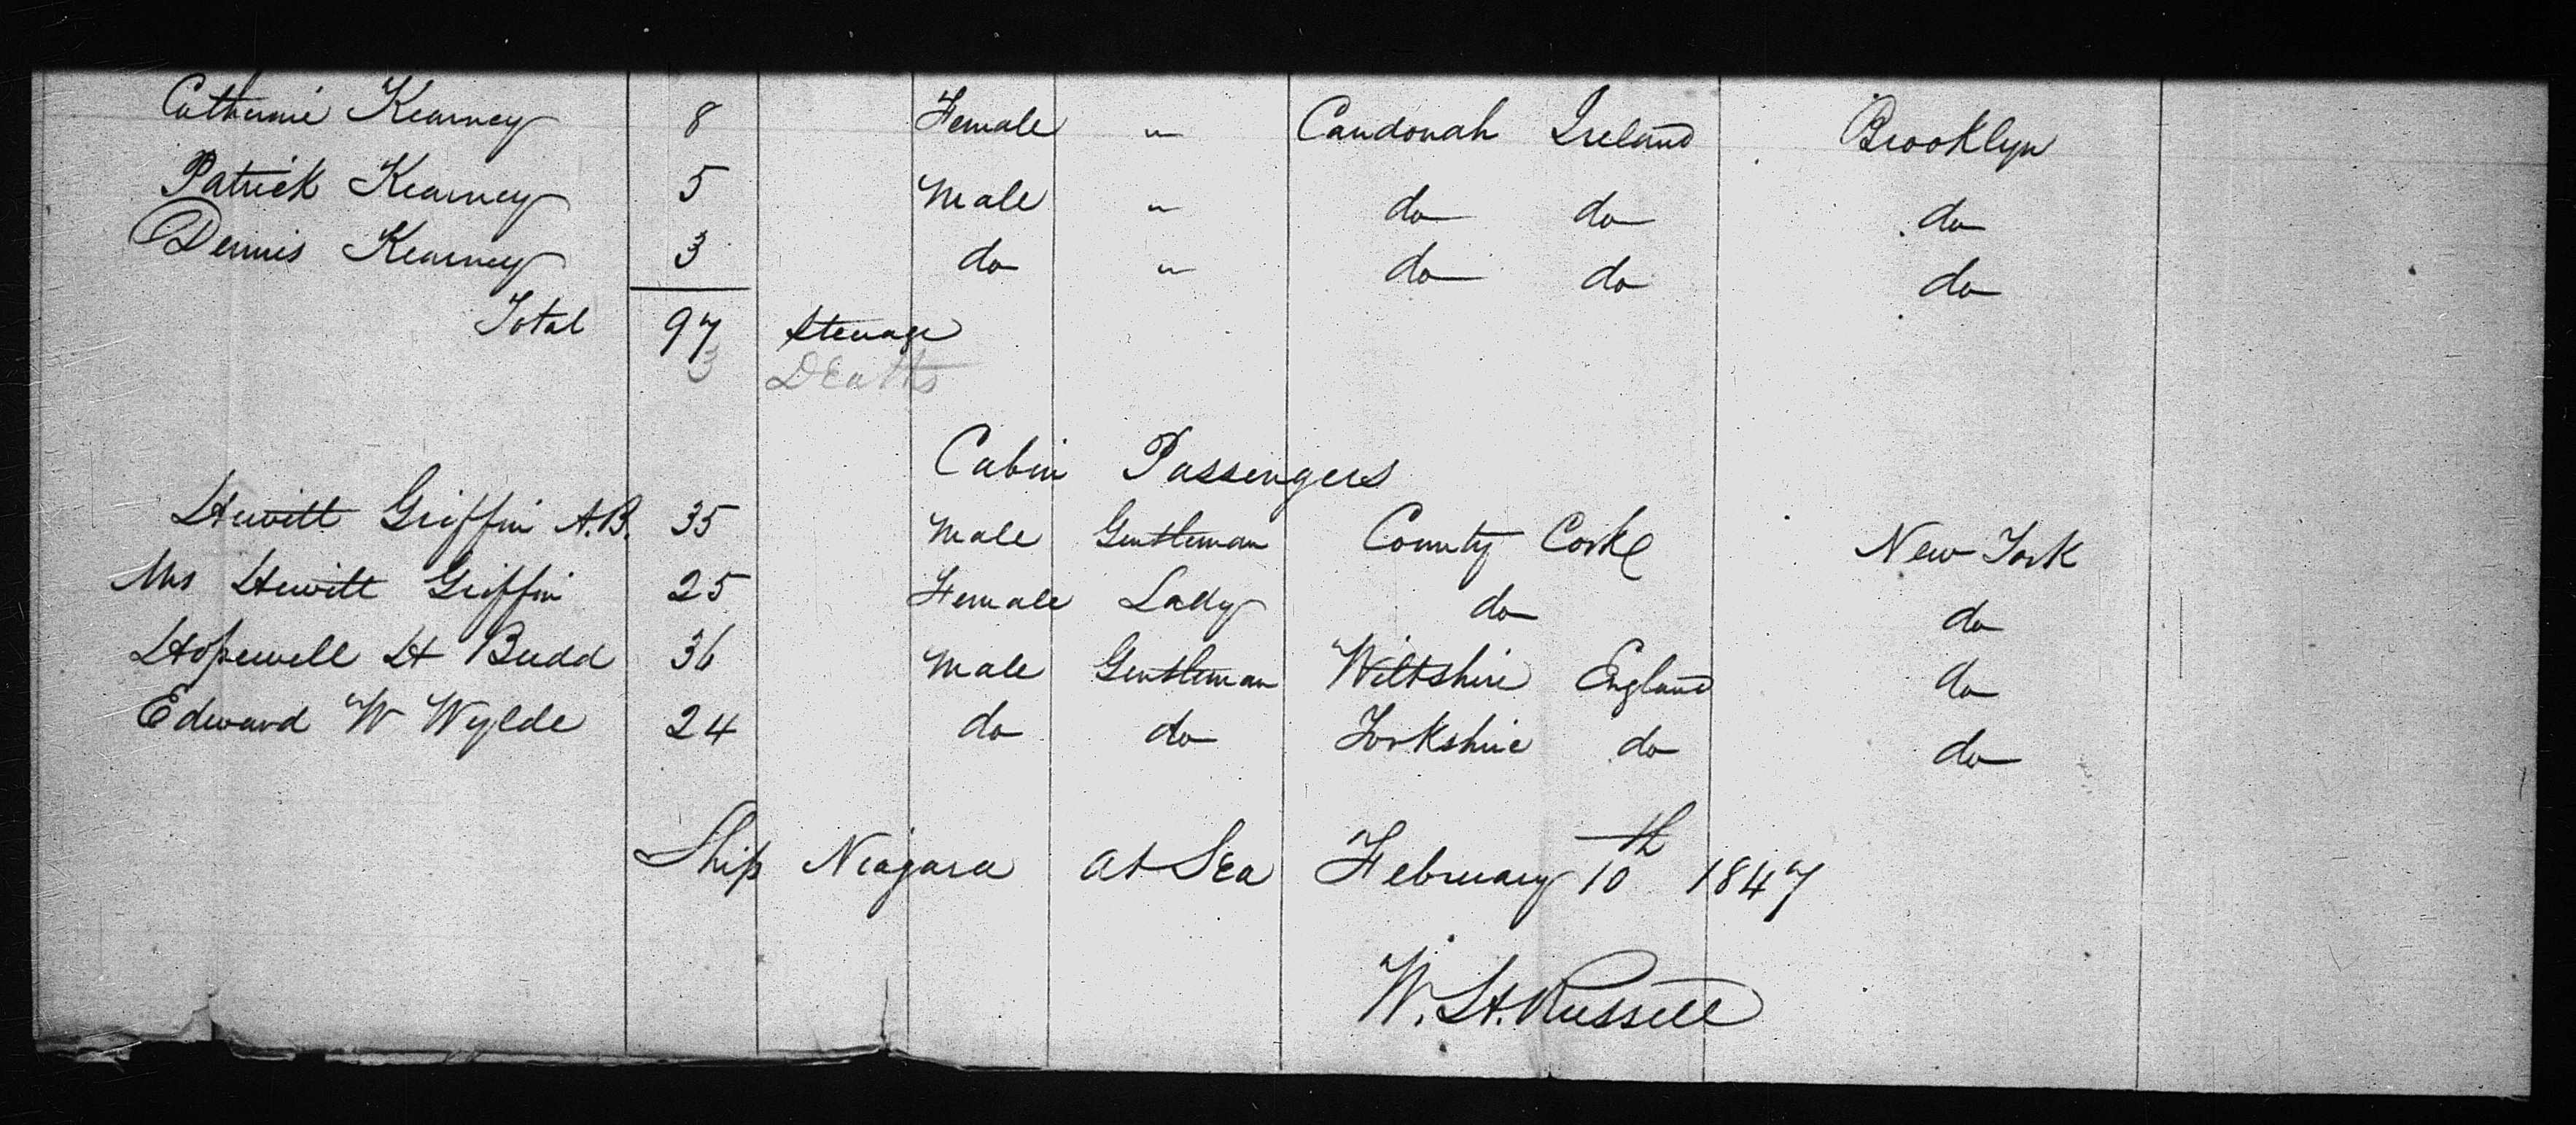 Catherine Kearney 8 Female " Candonah Ireland Brooklyn
Patrick Kearney 5 Male " do do do
Dennis Kearney 3 do " do do do
Total 97 Steerage
3 Deaths
Cabin Passengers
Hewitt Griffin A.B. 35 Male Gentleman County Cork New York
Mrs Hewitt Griffin 25 Female Lady do do
Hopewell H Budd 36 Male Gentleman Wiltshire England do
Edward W Wylde 24 do do Yorkshire do do
Ship Niagara at Sea February 10th 1847
W. H. Russell